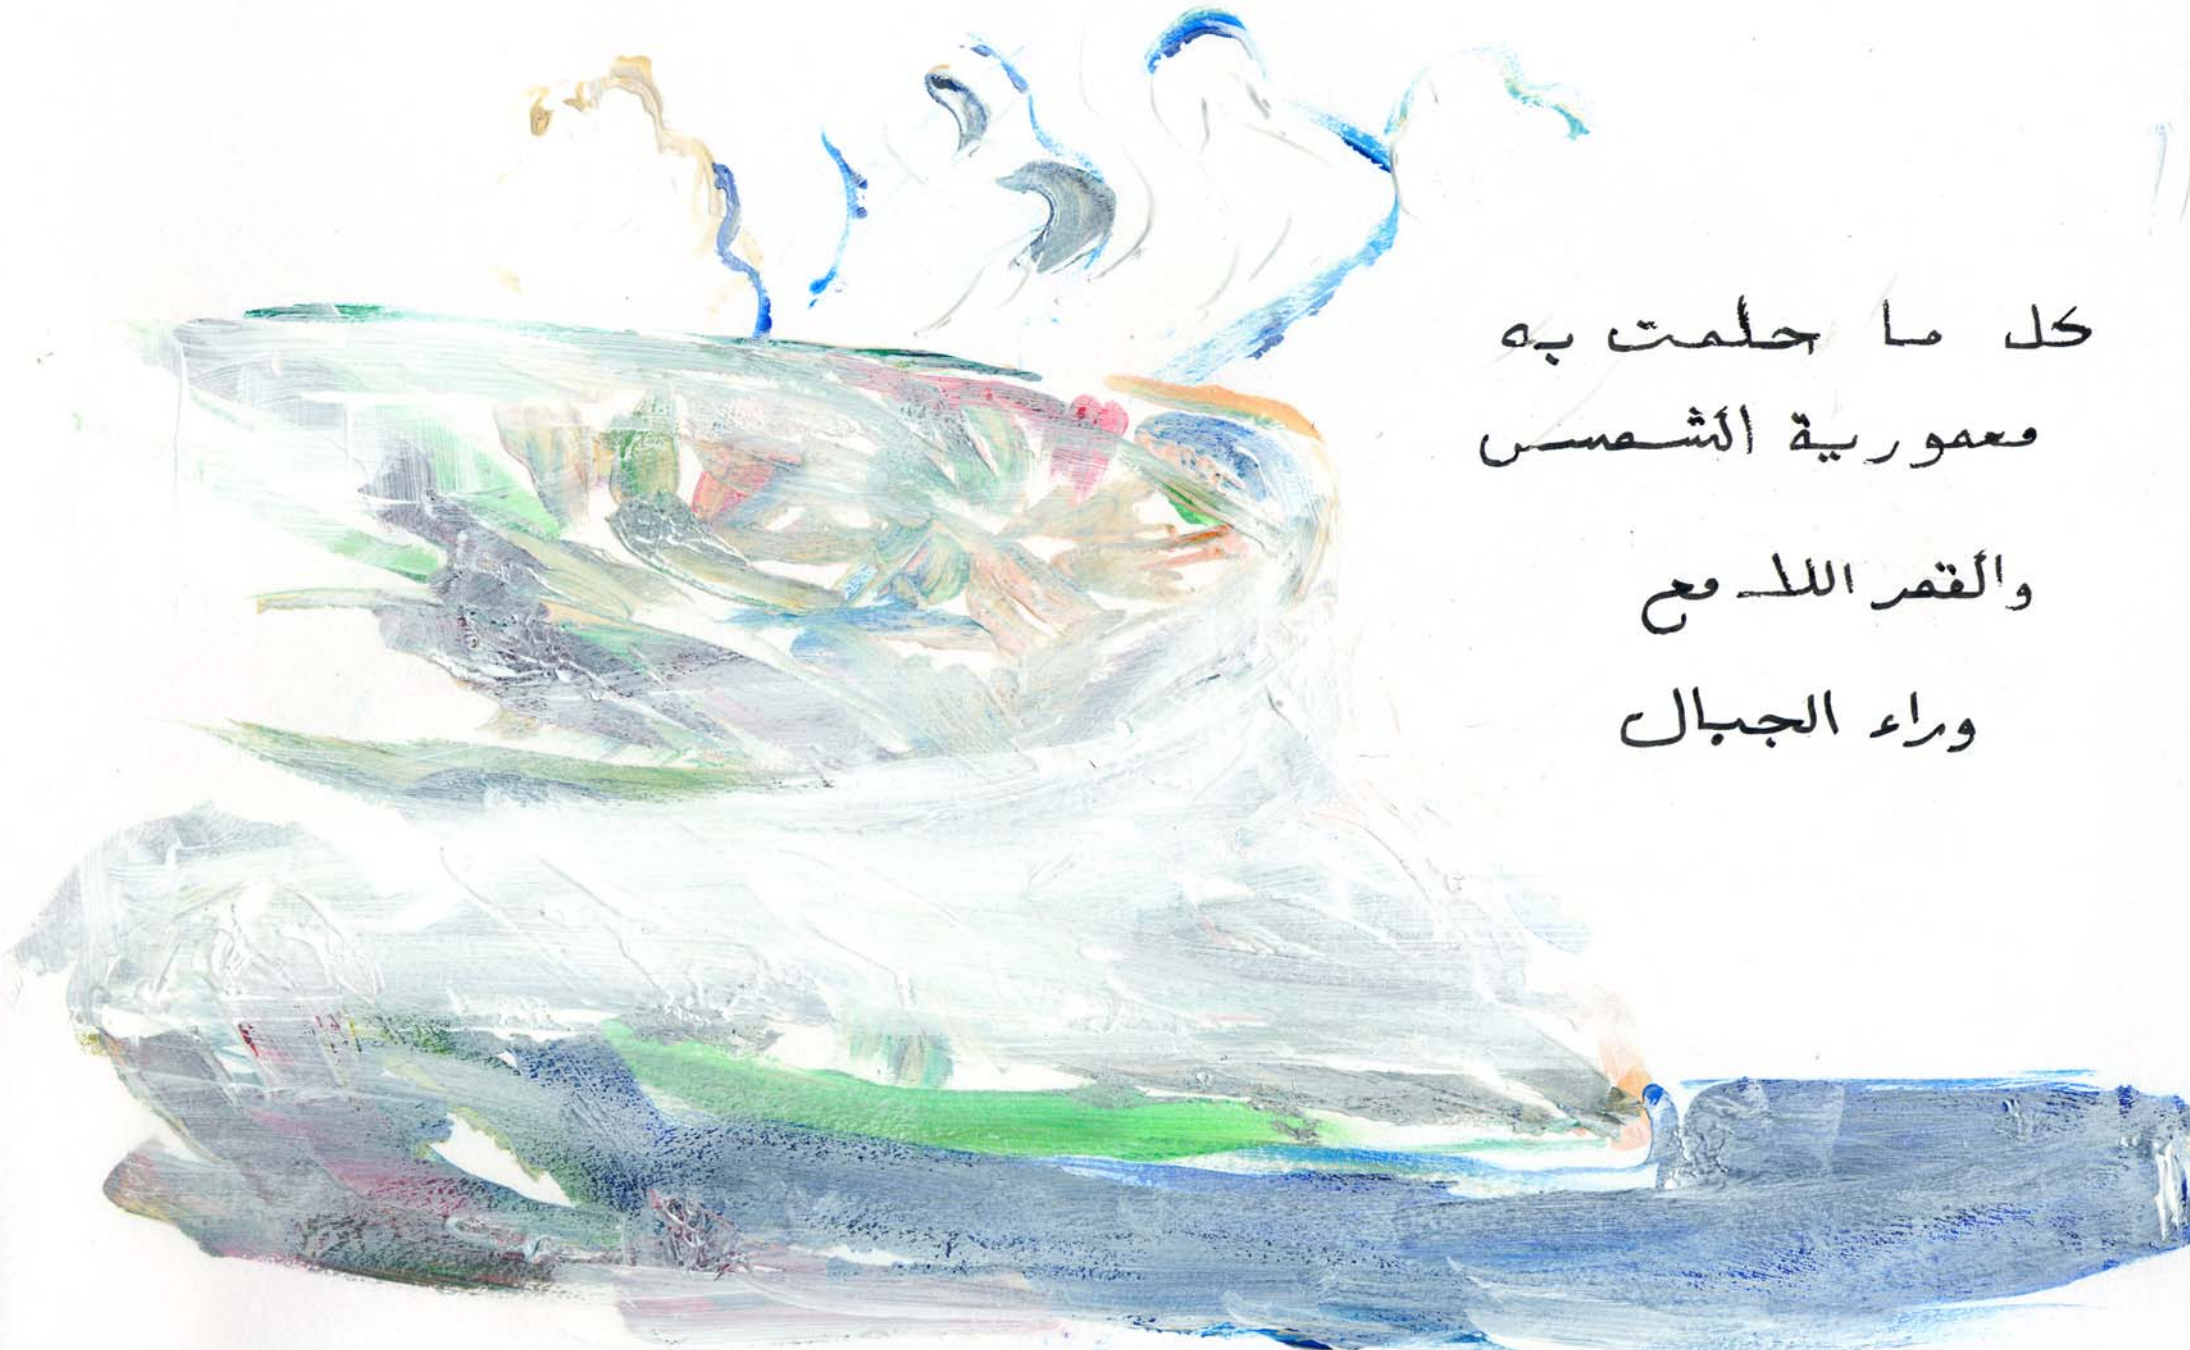 كل ما حلمت به
معمورية الشمس
والقمر اللامع
وراء الجبال